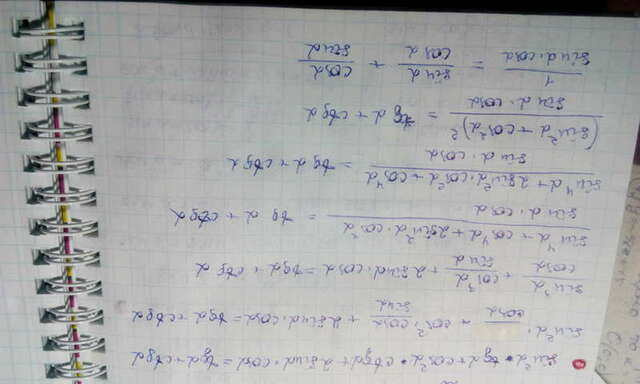 sin²α·tgα + cos²α·ctgα + 2sinα·cosα = tgα + ctgα
sin²α· /cosα + cos²α·cosα/sinα + 2sinα·cosα = tgα + ctgα
sin³α/cosα + cos³α/sinα + 2sinα·cosα = tgα + ctgα
(sin⁴α + cos⁴α + 2sin²α·cos²α)/(sinα·cosα) = tgα + ctgα
(sin⁴α + 2sin²α·cos²α + cos⁴α)/(sinα·cosα) = tgα + ctgα
(sin²α + cos²α)²/(sinα·cosα) = tgα + ctgα
1/(sinα·cosα) = sinα/cosα + cosα/sinα